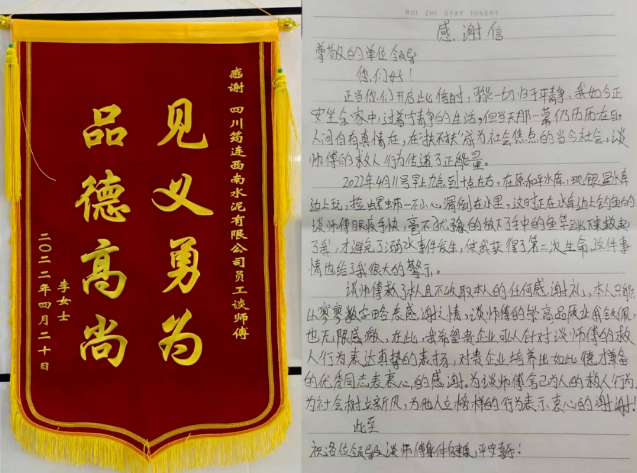 感谢 四川筠连西南水泥有限公司员工谈师傅
见义勇为
品德高尚
李女士
二〇二二年四月二十日
RUI ZHI STATIONERY
感谢信
尊敬的单位领导
您们好!
正当你们开启此信时,我一切归于平静,我如今正
安坐余家中,过着宁静的生活,但当天那一幕仍历历在目,
人间自有真情在,在扶不扶"成为社会焦点的当今社会,谈
师傅的救人行为传递了正能量。
2022年4月11号早上九点到十点左右,在原和平水库,现银昆水库
边上玩,捡螺蛳一不小心,滑倒在水里,这时正在水库边上钓鱼的
谈师傅眼疾手快,毫不犹豫的放下手中的鱼竿跳下来救起
了我,才避免了溺水事件发生,使我获得了第二次生命,这件事
情也给了我很大的警示。
谈师傅救了本人且不收取本人的任何感谢礼,本人只能
以寥寥数字略表感谢之情,谈师傅的崇高品质让我钦佩,
也无限感激,在此,我希望贵企业可以针对谈师傅的救
人行为表达真挚的表扬,对贵企业培养出如此德才兼备
的优秀同志表衷心的感谢。为谈师傅舍己为人的救人行为,
为社会树立新风,为他人立榜样的行为表示衷心的谢谢!
此至
祝各位领导及谈师傅身体健康,平安喜乐!